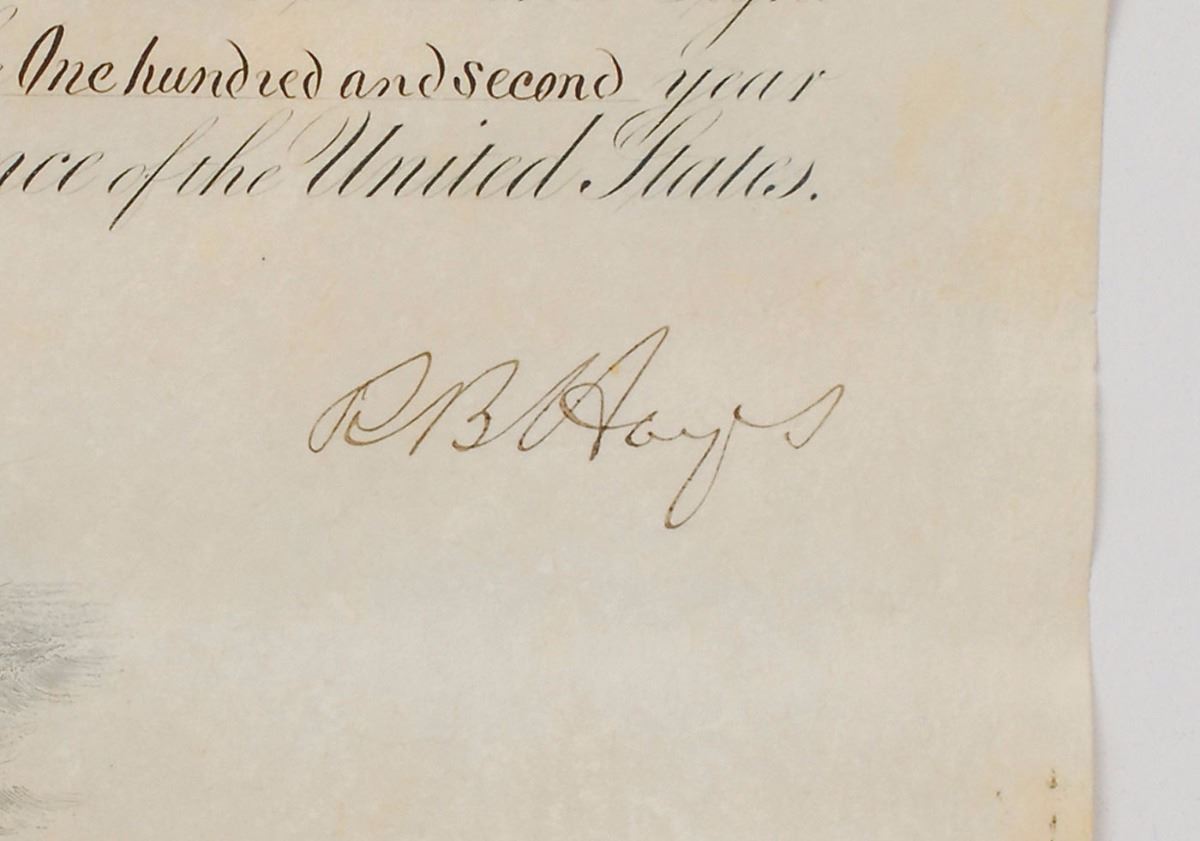 One hundred and second year
nce of the United States.
R B Hayes